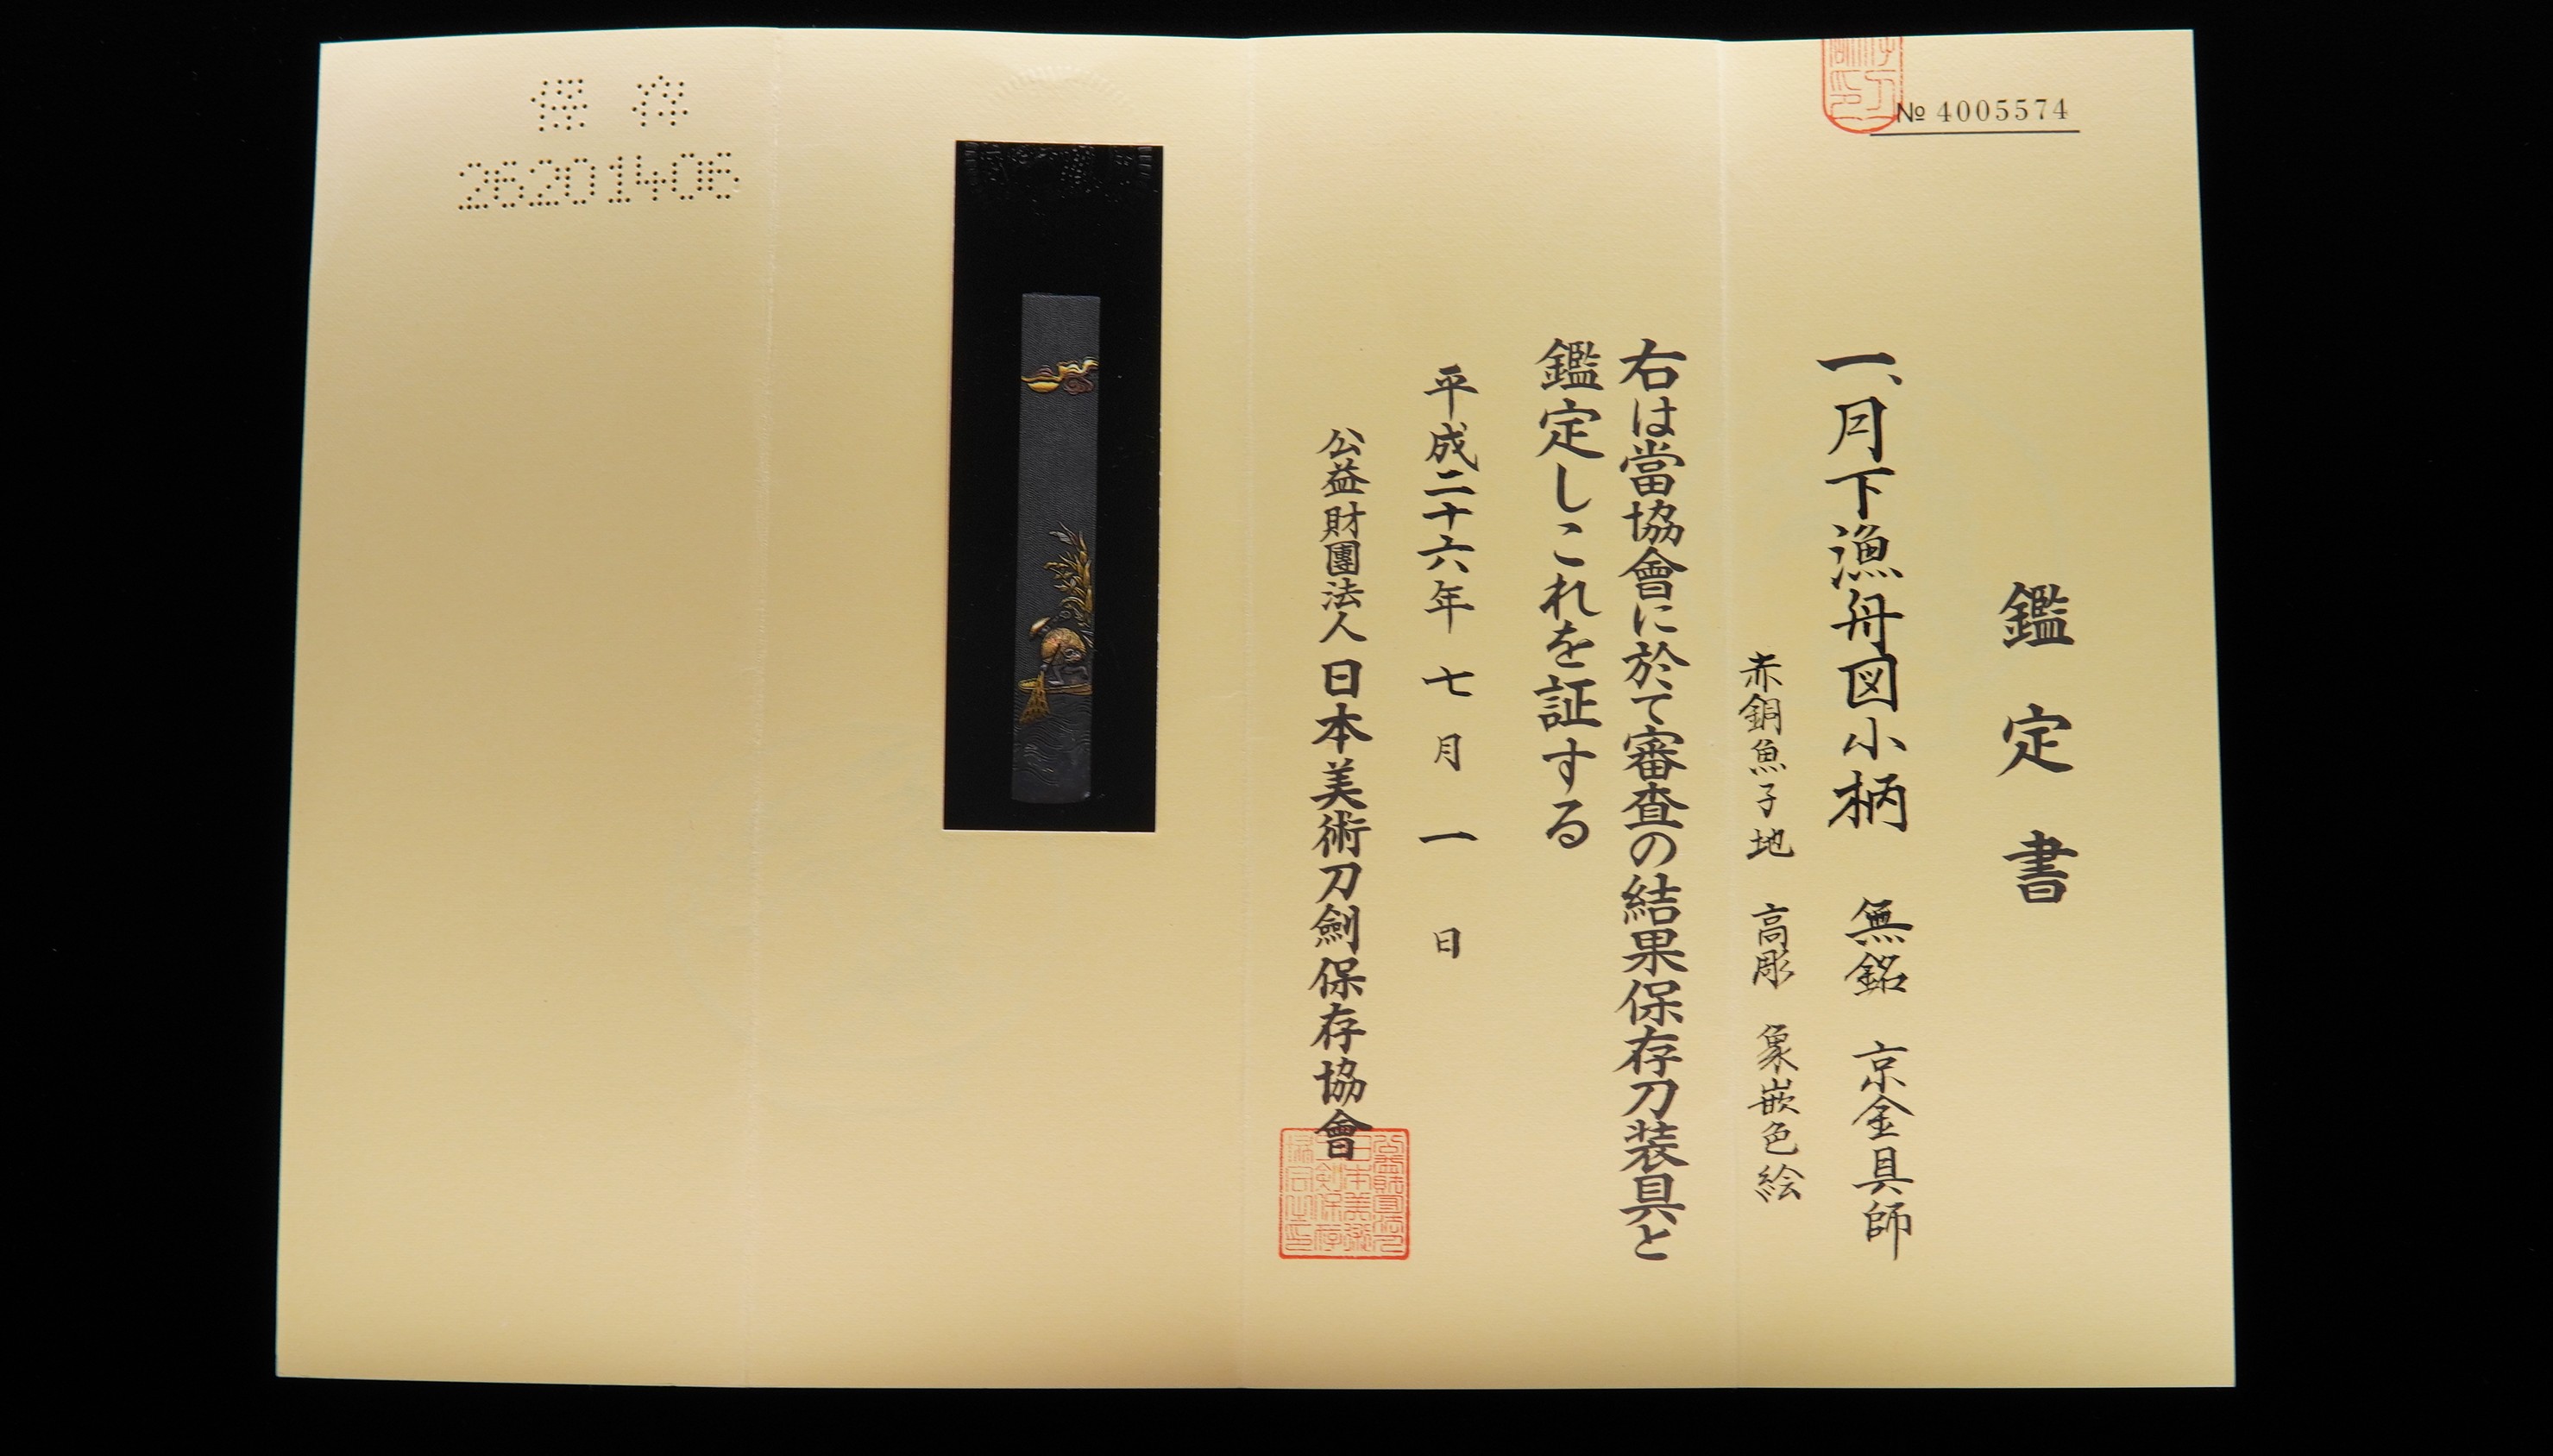 № 4005574
鑑定書
一、月下漁舟図小柄 無銘 京金具師
赤銅魚子地 高彫 象嵌色絵
右は當協會に於て審査の結果保存刀装具と
鑑定しこれを証する
平成二十六年七月一日
公益財團法人 日本美術刀劍保存協會
保存
26201406